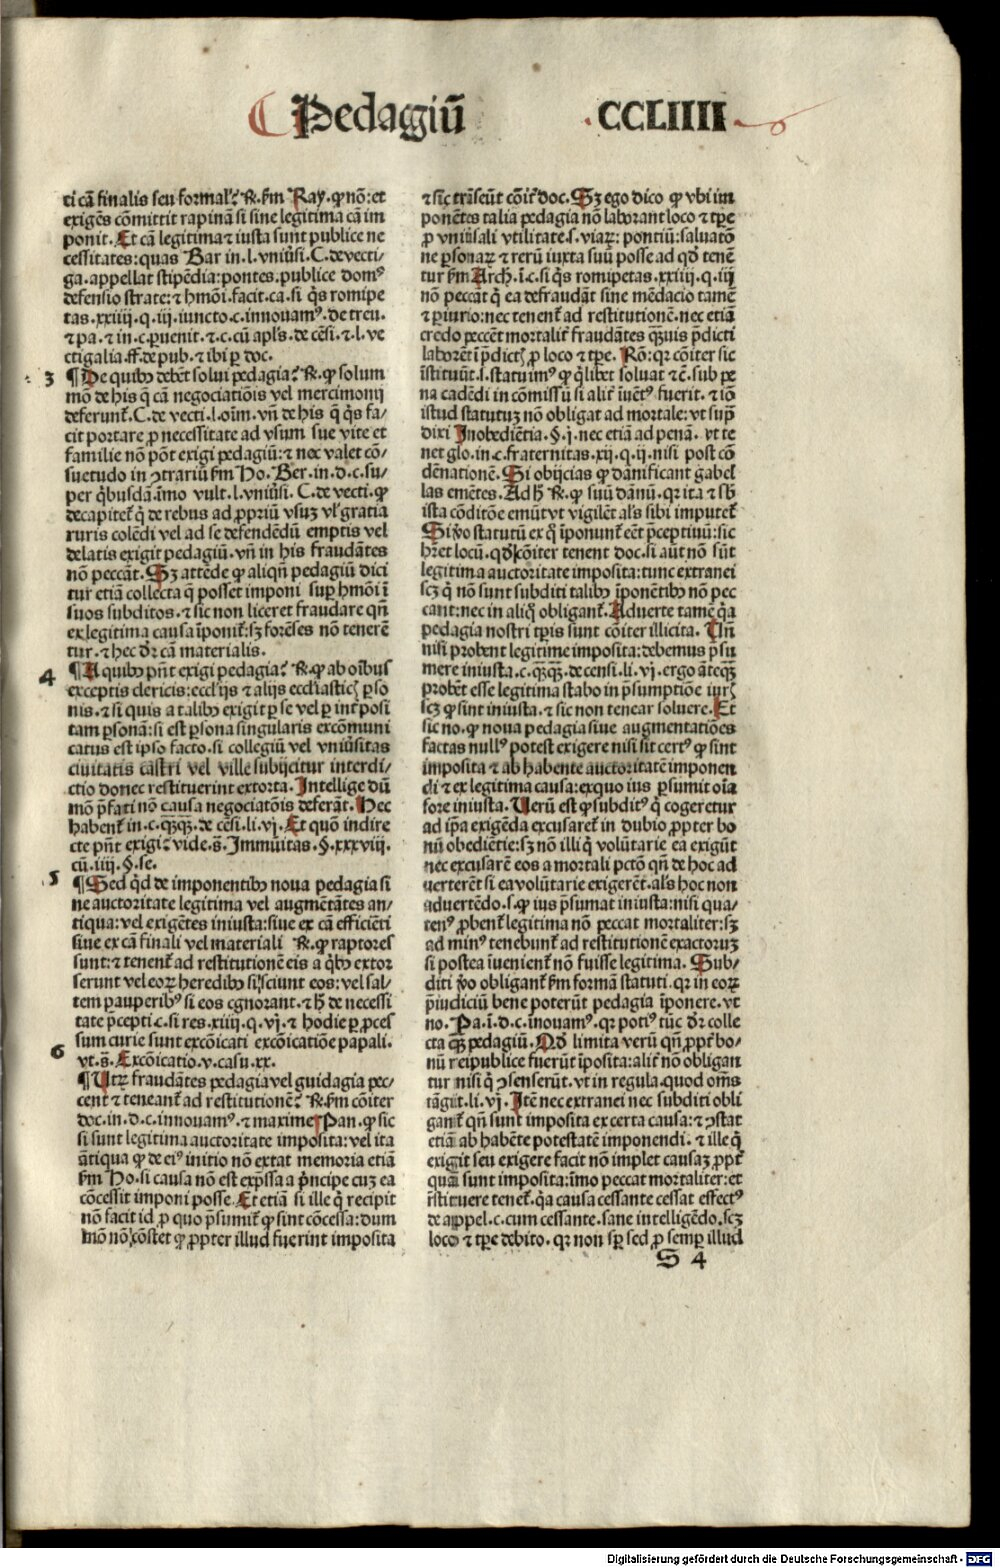 Pedagiū CCLIIII
ti cā finalis seu formalꝭ? R̃. s̃m Ray. ꝙ nō: et
exigēs cōmittit rapinā si sine legitima cā im
ponit. Et cā legitima ⁊ iusta sunt publice ne
cessitates: quas Bar in. l. vniṽsi. C. de vecti⸗
ga. appellat stipēdia: pontes. publice domꝰ
defensio strate: ⁊ hmōi. facit. ca. si q̇s romipe
tas. xxiiij. q. iij. iuncto. c. innouamꝰ. de treu.
⁊ pa. ⁊ in. c. ꝑuenit. ⁊ c. cū apl̄s. de cēsi. ⁊. l. ve
ctigalia. ff. de pub. ⁊ ibi ꝑ doc.
3 ¶ De quibꝰ debēt solui pedagia? R̃. ꝙ solum
mō de his q̄ cā negociatiōis vel mercimonij
deferunt̃. C. de vecti. l. oīm. vn̄ de his q̄ q̇s fa⸗
cit portare ꝓ necessitate ad vsum sue vite et
familie nō pn̄t exigi pedagiū: ⁊ nec valet cō⸗
suetudo in ꝯtrariū s̃m Ho. Ber. in. d. c. su⸗
per q̇busdā. īmo vult. l. vniṽsi. C. de vecti. ꝙ
decapitet̃ q̇ de rebus ad ꝓpriū vsuꝫ vl̕ gratia
ruris colēdi vel ad se defendēdū emptis vel
delatis exigit pedagiū. vn̄ in his fraudātes
nō peccāt. Sꝫ attēde ꝙ aliqn̄ pedagiū dici
tur etiā collecta q̄ posset imponi suꝑ hmōi ī
suos subditos. ⁊ sic non liceret fraudare qn̄
ex legitima causa īponit̃: sꝫ forēses nō tenerē
tur. ⁊ hec dr̄ cā materialis.
4 ¶ A quibꝰ pn̄t exigi pedagia? R̃. ꝙ ab oībus
exceptis clericis: eccl̄ijs ⁊ alijs eccl̄iasticꝭ ꝑso
nis. ⁊ si quis a talibꝰ exigit ꝑ se vel ꝑ int̃posi
tam ꝑsonā: si est ꝑsona singularis excōmuni
catus est ipso facto. si collegiū vel vniṽsitas
ciuitatis castri vel ville subijcitur interdi⸗
ctio donec restituerint extorta. Intellige dū
mō p̄fati nō causa negociatōis deferāt. Hec
habent̃ in. c. q̄ꝫq̄ꝫ. de cēsi. li. vj. Et quō indire
cte pn̄t exigi? vide. s̄. Immūitas. §. xxxviij.
cū. iiij. §. se.
5 ¶ Sed q̇d de imponentibꝰ noua pedagia si
ne auctoritate legitima vel augmētātes an⸗
tiqua: vel exigētes iniusta: siue ex cā efficiēti
siue ex cā finali vel materiali R̃. ꝙ raptores
sunt: ⁊ tenent̃ ad restitutionē eis a q̇bꝰ extor
serunt vel eoꝝ heredibꝰ si sciunt eos: vel sal⸗
tem pauperibꝰ si eos ꝯgnorant. ⁊ h̄ de necessi
tate p̄cepti. c. si res. xiiij. q. vj. ⁊ hodie ꝑ ꝓces
sum curie sunt excōicati excōicatiōe papali.
vt. s̄. Excōicatio. v. casu. xx.
6 ¶ Utꝝ fraudātes pedagia vel guidagia pec⸗
cent ⁊ teneant̃ ad restitutionē? R̃. s̃m cōiter
doc. in. d. c. innouamꝰ. ⁊ maxime Pan. ꝙ sic
si sunt legitima auctoritate imposita: vel ita
ātiqua ꝙ de eiꝰ initio nō extat memoria etiā
s̃m Ho. si causa nō est exp̄ssa a p̄ncipe cuꝫ ea
cōcessit imponi posse. Et etiā si ille q̇ recipit
nō facit id ꝓ quo p̄sumit̃ ꝙ sint cōcessa: dum
mō nō ꝯstet ꝙ ꝓpter illud fuerint imposita
⁊ sic trāseūt cōit̃ doc. Sꝫ ego dico ꝙ vbi im
ponētes talia pedagia nō laborant loco ⁊ tꝑe
ꝓ vniṽsali vtilitate. s. viaꝝ: pontiū: saluatō
ne ꝑsonaꝝ ⁊ rerū iuxta suū posse ad qd̄ tenē
tur s̃m Arch. ī. c. si q̇s romipetas. xxiiij. q. iij
nō peccāt q̇ ea defraudāt sine mēdacio tamē
⁊ ꝑiurio: nec tenent̃ ad restitutionē. nec etiā
credo peccēt mortalit̃ fraudātes q̄ꝫuis p̄dicti
laborēt ī p̄dictꝭ ꝓ loco ⁊ tꝑe. Rō: qꝛ cōiter sic
īstituūt. s. statuimꝰ ꝙ q̇libet soluat ⁊c̄. sub pe
na cadēdi in cōmissū si alit̃ iuēt̃ fuerit. ⁊ iō
istud statutuꝫ nō obligat ad mortale: vt sup̃
dixi Inobediētia. §. j. nec etiā ad penā. vt te
net glo. in. c. fraternitas. xij. q. ij. nisi post cō
dēnationē. Si obijcias ꝙ dānificant gabel
las emētes. Ad h̄ R̃. ꝙ suū dānū. qꝛ ita ⁊ sb̄
ista cōditōe emūt vt vigilēt als̄ sibi imputet̃
Si ṽo statutū ex q̄ īponunt̃ eēt p̄ceptiuū: sic
hr̄et locū. qd̄ cōiter tenent doc. si aūt nō sūt
legitima auctoritate imposita: tunc extranei
scꝫ q̇ nō sunt subditi talibꝰ īponētibꝰ nō pec
cant: nec in aliq̄ obligant̃. Aduerte tamē q̇a
pedagia nostri tꝑis sunt cōiter illicita. Un̄
nisi probent̃ legitime imposita: debemus p̄su
mere iniusta. c. q̄ꝫq̄ꝫ. de censi. li. vj. ergo āteq̄ꝫ
probēt esse legitima stabo in p̄sumptiōe iurꝭ
scꝫ ꝙ sint iniusta. ⁊ sic non tenear soluere. Et
sic no. ꝙ noua pedagia siue augmentatiōes
factas nullꝰ potest exigere nisi sit certꝰ ꝙ sint
imposita ⁊ ab habente auctoritatē imponen
di ⁊ ex legitima causa: exquo ius p̄sumit oīa
fore iniusta. Uerū est ꝙ subditꝰ q̇ cogeretur
ad ip̄a exigēda excusaret̃ in dubio ꝓpter bo
nū obediētie: sꝫ non illi q̇ volūtarie ea exigūt
nec excusarēt eos a mortali pctō qn̄ de hoc ad
uerterēt si ea volūtarie exigerēt. als̄ hoc non
aduertēdo. s. ꝙ ius p̄sumat iniusta: nisi qua⸗
tenꝰ ꝓbent̃ legitima nō peccat mortaliter: sꝫ
ad minꝰ tenebunt̃ ad restitutionē exactoruꝫ
si postea īuenient̃ nō fuisse legitima. Sub⸗
diti ṽo obligant̃ s̃m formā statuti. qꝛ in eoꝝ
p̄iudiciū bene poterūt pedagia īponere. vt
no. Pa. ī. d. c. īnouamꝰ. qꝛ potiꝰ tūc dr̄ colle
cta q̄ꝫ pedagiū. Qd̄ limita verū qn̄ ꝓpt̃ bo⸗
nū reipublice fuerūt īposita: alit̃ nō obligan
tur nisi q̇ ꝯsenserūt. vt in regula. quod om̄s
tāgūt. li. vj. Itē nec extranei nec subditi obli
gant̃ qn̄ sunt imposita ex certa causa: ⁊ ꝯstat
etiā ab habēte potestatē imponendi. ⁊ ille q̇
exigit seu exigere facit nō implet causaꝫ ꝓpt̃
quā sunt imposita: īmo peccat mortaliter: et
r̄stituere tenet̃. q̇a causa cessante cessat effectꝰ
de appel. c. cum cessante. sane intelligēdo. scꝫ
loco ⁊ tꝑe debito. qꝛ non sꝑ sed ꝓ semꝑ illud
S 4
Digitalisierung gefördert durch die Deutsche Forschungsgemeinschaft - DFG